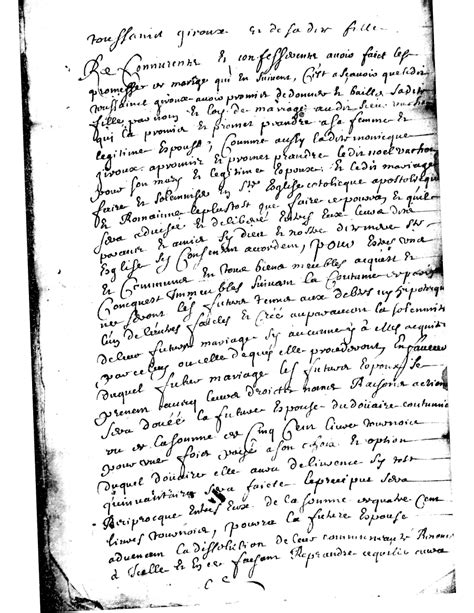 toussainct giroux et de sadite fille
Recongnurent et confesserent avoir faict les
promesses de mariage qui en suivent, C'est asçavoir que ledit
toussainct giroux avoir promis de donner et bailler sadite
fille par nom et loy de mariage audit sieur vachon
qui la promis et promet prandre a sa femme et
legitime Espouse, Comme aussy ladite monicque
giroux a promis et promet prandre ledit noel vachon
pour son mary et legitime Espoux, et ledit mariage
faire et solemniser en Ste Eglise catholicque apostolique
et Romainne le plustost que faire ce pourra et qu'il
sera advisé et deliberé entre Eux leurs dits
parans et amis sy dieu et nostre dite mere Ste
Eglise sy Consentent accordent, pour Estre uns
et Communs en tous biens meubles acquest et
Conquest Immeubles suivant la Coutume de paris
ne seront les futurs tenus aux debtes ny hipotecque
l'un de l'autre faictes et Créé auparavant la solemnité
de leur futur mariage sy aucunne y a Elles acquitte
par celuy ou celle de qui elle procederont, En faveur
duquel futur mariage les futurs Espoux se
prenent avecq leurs droicts noms Raisons actions
sera douée la future Espouse du douaire coutumier
ou de la somme de Cinq Cent livres tournois
pour une fois payé a son choix et option
duquel douaire elle aura delivrance sy tost
qu'inventaire sera faicte le preciput sera
Reciprocque entre Eux de la somme de quatre Cent
livres tournois, pourra la future Espouse
advenant la dissolution de leur communauté Renoncer
a Icelle et En ce faisant Reprandre ce qu'elle aura